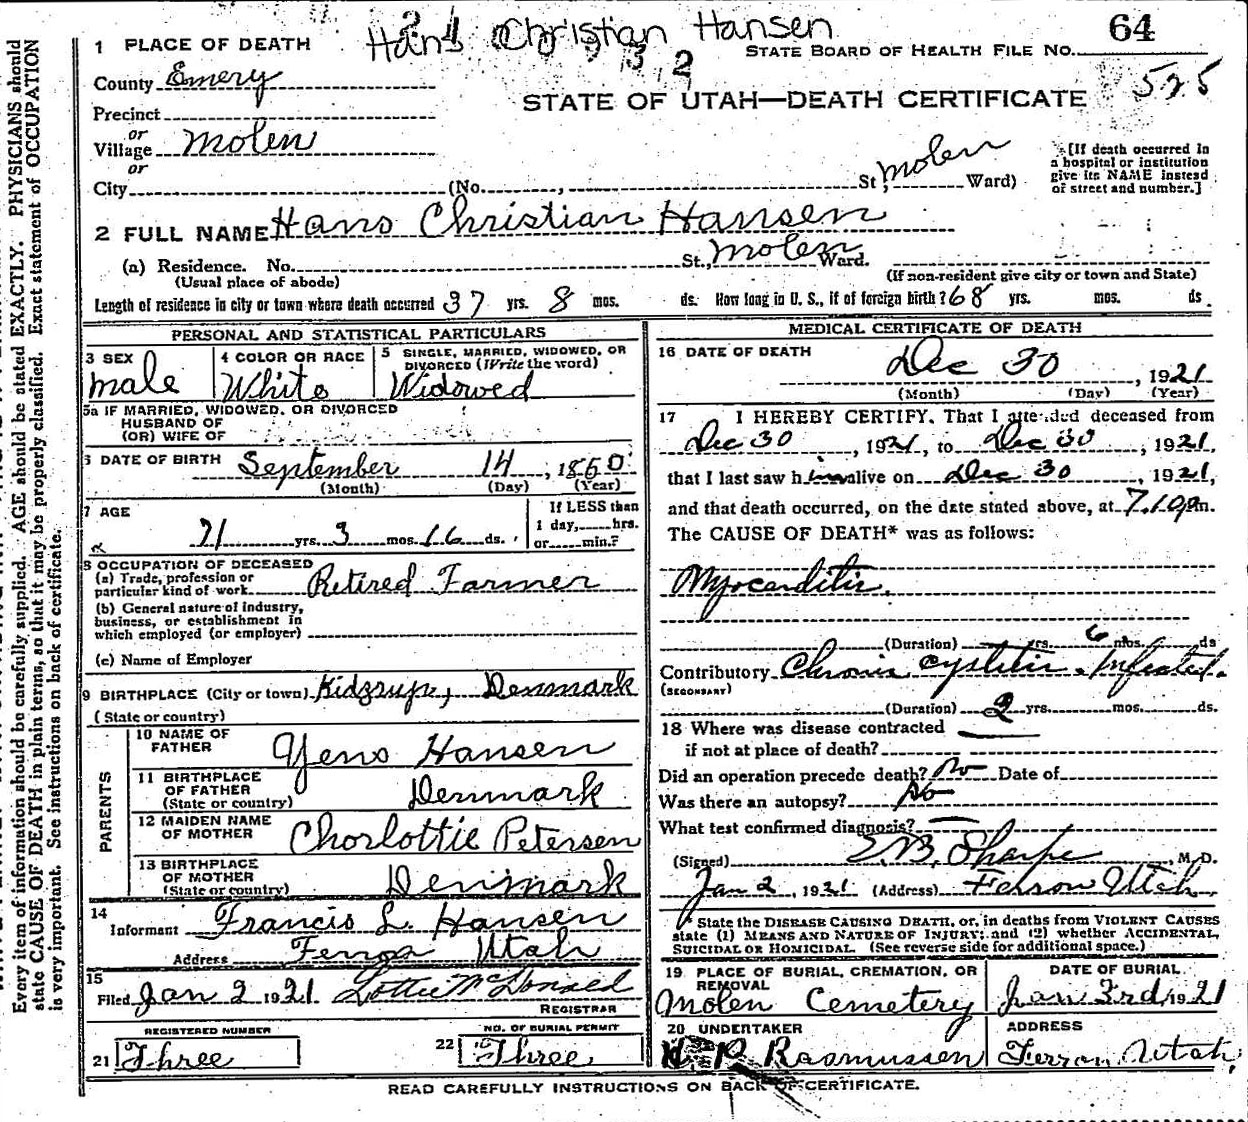 Hans Christian Hansen
64
1 PLACE OF DEATH
STATE BOARD OF HEALTH FILE NO.
County Emery
525
STATE OF UTAH—DEATH CERTIFICATE
Precinct
or
Village Molen
or
City (No. , St., Molen Ward)
[If death occurred in a hospital or institution give its NAME instead of street and number.]
2 FULL NAME Hans Christian Hansen
(a) Residence. No. St., Molen Ward.
(Usual place of abode)
(If non-resident give city or town and State)
Length of residence in city or town where death occurred 37 yrs. 8 mos. ds. How long in U. S., if of foreign birth? 68 yrs. mos. ds.
PERSONAL AND STATISTICAL PARTICULARS
3 SEX
male
4 COLOR OR RACE
White
5 SINGLE, MARRIED, WIDOWED, OR DIVORCED (Write the word)
Widowed
5a IF MARRIED, WIDOWED, OR DIVORCED
HUSBAND OF
(OR) WIFE OF
6 DATE OF BIRTH September 14, 1850
(Month) (Day) (Year)
7 AGE
71 yrs. 3 mos. 16 ds.
If LESS than
1 day, hrs.
or min.?
8 OCCUPATION OF DECEASED
(a) Trade, profession or
particular kind of work Retired Farmer
(b) General nature of industry,
business, or establishment in
which employed (or employer)
(c) Name of Employer
9 BIRTHPLACE (City or town) Denmark
(State or country)
PARENTS
10 NAME OF
FATHER Yens Hansen
11 BIRTHPLACE
OF FATHER
(State or country) Denmark
12 MAIDEN NAME
OF MOTHER Chorlottie Petersen
13 BIRTHPLACE
OF MOTHER
(State or country) Denmark
14
Informant Francis L. Hansen
Address Utah
15
Filed Jan 2 1921 Lottie McDonald
REGISTRAR
REGISTERED NUMBER
21 Three
NO. OF BURIAL PERMIT
22 Three
MEDICAL CERTIFICATE OF DEATH
16 DATE OF DEATH
Dec 30, 1921
(Month) (Day) (Year)
17 I HEREBY CERTIFY, That I attended deceased from
Dec 30, 1921, to Dec 30, 1921,
that I last saw him alive on Dec 30, 1921,
and that death occurred, on the date stated above, at 7.10 pm.
The CAUSE OF DEATH* was as follows:
Myocarditis.
(Duration) yrs. 6 mos. ds
Contributory Chronic cystitis. Infected.
(SECONDARY)
(Duration) 2 yrs. mos. ds.
18 Where was disease contracted
if not at place of death?
Did an operation precede death? No Date of
Was there an autopsy? No
What test confirmed diagnosis?
(Signed) E. B. Sharpe, M. D.
Jan 2, 1921 (Address) Ferron Utah
* State the DISEASE CAUSING DEATH, or, in deaths from VIOLENT CAUSES
state (1) MEANS AND NATURE OF INJURY; and (2) whether ACCIDENTAL,
SUICIDAL OR HOMICIDAL. (See reverse side for additional space.)
19 PLACE OF BURIAL, CREMATION, OR
REMOVAL
Molen Cemetery
DATE OF BURIAL
Jan 3rd, 1921
20 UNDERTAKER
Rasmussen
ADDRESS
Ferron, Utah,
READ CAREFULLY INSTRUCTIONS ON BACK OF CERTIFICATE.
Every item of information should be carefully supplied. AGE should be stated EXACTLY. PHYSICIANS should
state CAUSE OF DEATH in plain terms, so that it may be properly classified. Exact statement of OCCUPATION
is very important. See instructions on back of certificate.